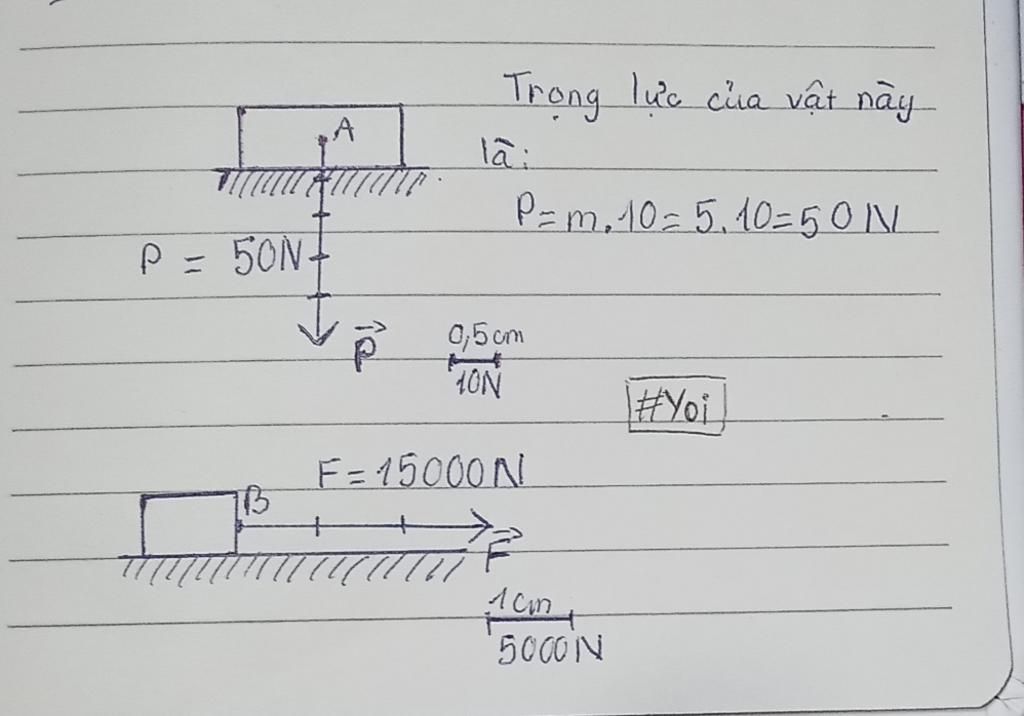 Trọng lực của vật này
là:
A
P = m.10 = 5.10 = 50 N
P = 50N
P
0,5 cm
10N
#Yoi
F = 15000N
B
F
1cm
5000N